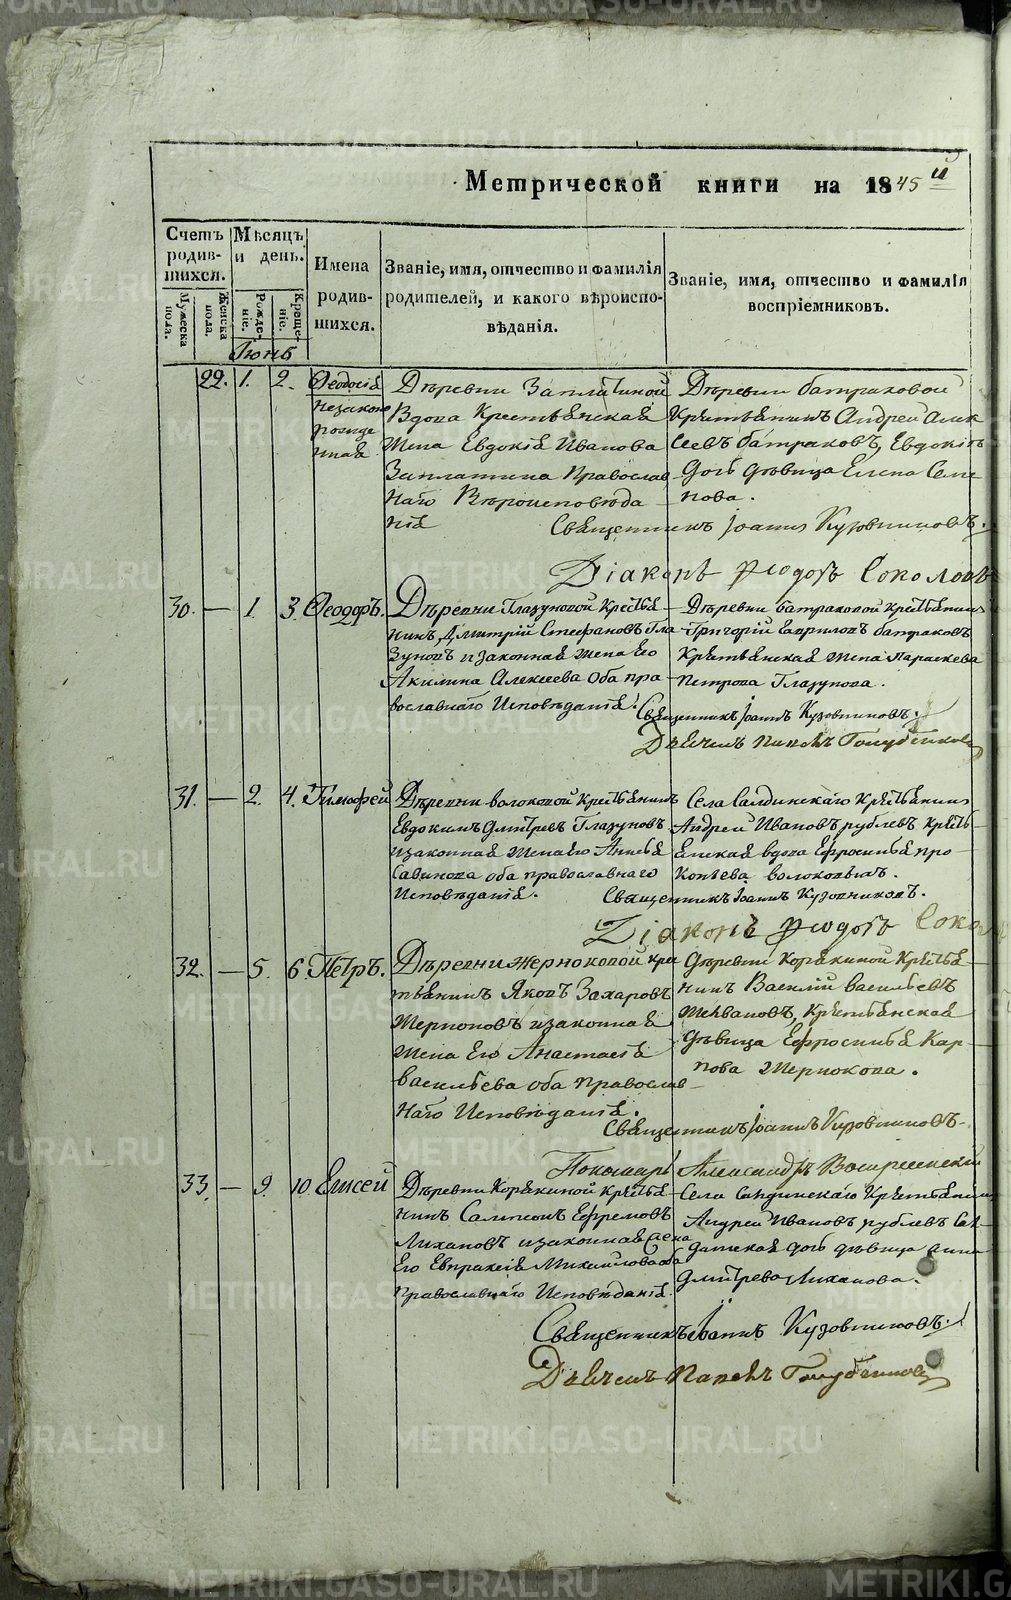 METRIKI.GASO-URAL.RU
Метрической книги на 1845 й
Счетъ родив-шихся.
Мѣсяцъ и день.
Имена родив-шихся.
Званіе, имя, отчество и фамилія родителей, и какого вѣроиспо-вѣданія.
Званіе, имя, отчество и фамилія воспріемниковъ.
Мужеска пола.
Женска пола.
Рожде-ніе.
Креще-ніе.
Іюнь
22. 1. 2. Ѳеодосія
незаконо
рожде
нная
Дѣревни Заплатиной
Вдова Крестьянская
Жена Евдокія Иванова
Заплатина Православ
наго Вѣроисповѣда
нія
Дѣревни батраковой
Крестьянинъ Андреи Алек
сеевъ батраковъ,
дочь дѣвица Елена Семе
нова.
Священникъ Іоаннъ Кузовниковъ.
Діаконъ Ѳеодоръ Соколовъ
30. — 1. 3. Ѳеодоръ.
Дѣревни Глазуновой Крестья
нинъ, Дмитрій Стефановъ Гла
зуновъ и законная жена его
Акилина Алексеева оба пра
вославнаго Исповѣданія.
Дѣревни батраковой Крестьянинъ
Григорій Гавриловъ батраковъ
Крестьянская жена Параскева
Петрова Глазунова.
Священникъ Іоаннъ Кузовниковъ.
Дьячекъ Павелъ
31. — 2. 4. Тимофей
Дѣревни волоковой Крестьянинъ
Евдокимъ Дмитревъ Глазуновъ
и законная жена его
Савинова оба православнаго
Исповѣданія.
Села Салдинскаго Крестьянинъ
Андреи Ивановъ рублевъ Кресть
янская вдова Ефросинья Про
копьева
Священникъ Іоаннъ Кузовниковъ.
Діаконъ Ѳеодоръ Сокол
32. — 5. 6. Петръ.
Дѣревни жерноковой кре
стьянинъ Яковъ Захаровъ
и законная
жена Его Анастасья
васильева оба Православ
наго Исповѣданія.
дѣревни Корякиной Крестья
нинъ Василій васильевъ
Крестьянская
дѣвица Ефросинья Кар
пова Жернокова.
Священникъ Іоаннъ Кузовниковъ
Пономарь Александръ Воскресенскій
33. — 9. 10. Елисей
Дѣревни Корякиной Крестья
нинъ Сампсонъ Ефремовъ
Лихановъ и законная жена
Его Евпраксія Михаилова оба
Православнаго Исповѣданія.
Села Салдинскаго Крестьянинъ
Андреи Ивановъ рублевъ Сол
датская дочь дѣвица анна
дмитрева Лиханова.
Священникъ Іоаннъ Кузовниковъ.
Дьячекъ Павелъ